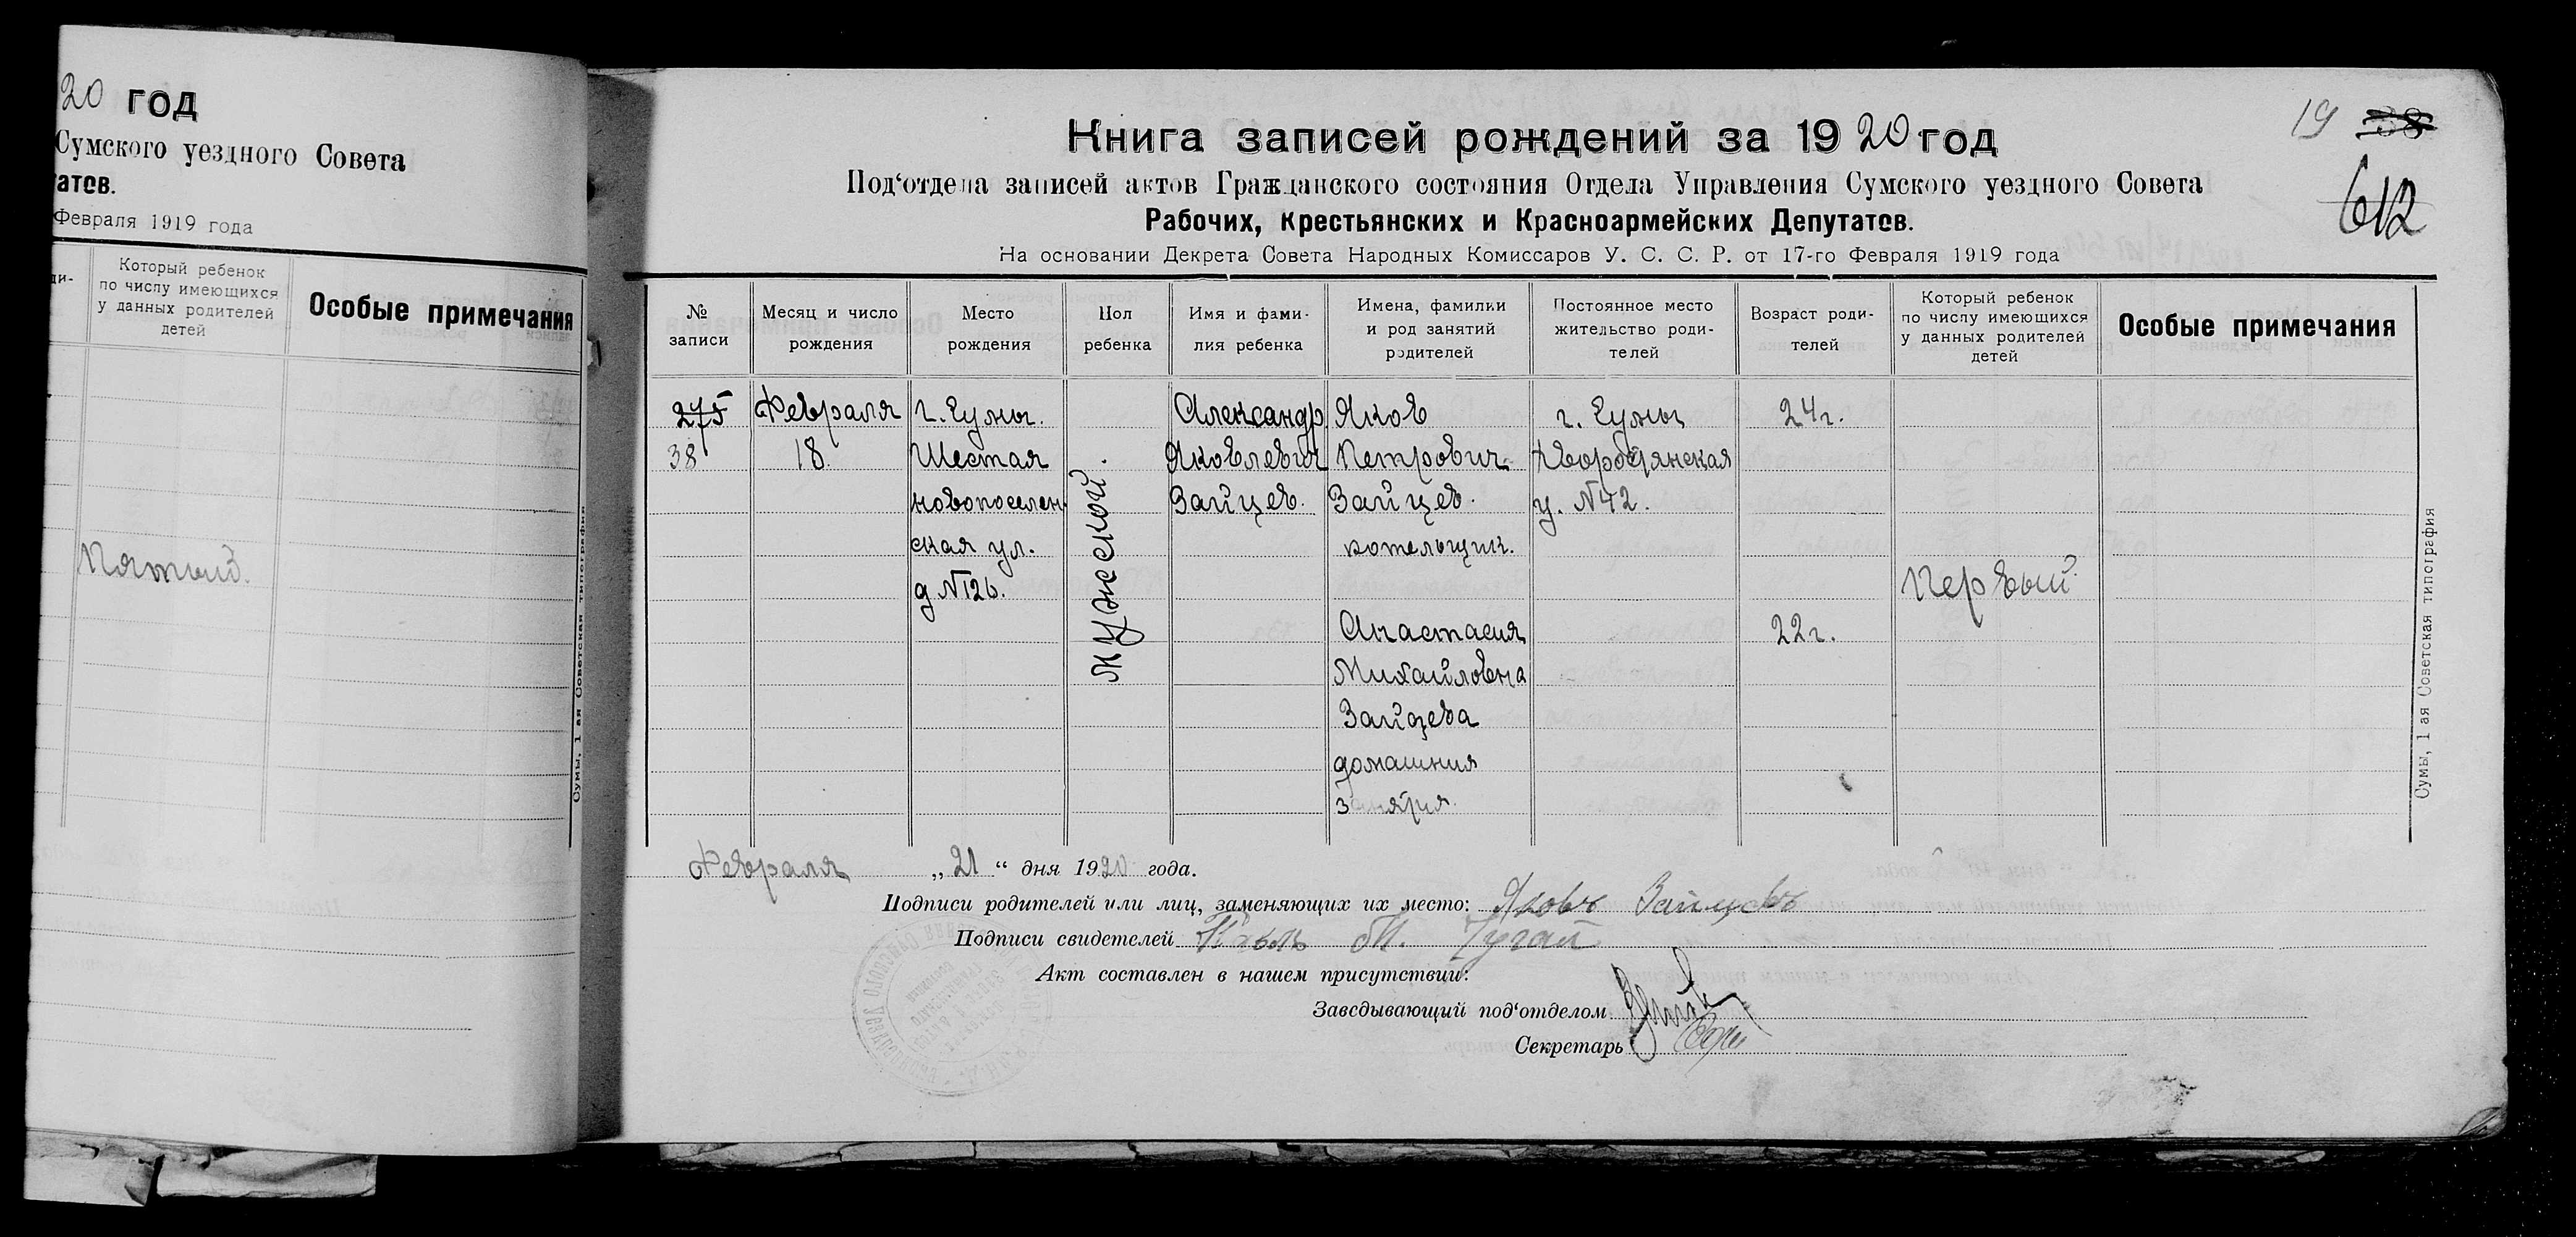 20 год
Сумского уездного Совета
атов.
Февраля 1919 года
ди-
Который ребенок
по числу имеющихся
у данных родителей
детей
Особые примечания
Пятый.
Сумы, 1 ая Советская типография
Книга записей рождений за 1920 год
19 38
612
Под‘отдела записей актов Гражданского состояния Отдела Управления Сумского уездного Совета
Рабочих, Крестьянских и Красноармейских Депутатов.
На основании Декрета Совета Народных Комиссаров У. С. С. Р. от 17-го Февраля 1919 года
№
записи
Месяц и число
рождения
Место
рождения
Пол
ребенка
Имя и фами-
лия ребенка
Имена, фамилии
и род занятий
родителей
Постоянное место
жительство роди-
телей
Возраст роди-
телей
Который ребенок
по числу имеющихся
у данных родителей
детей
Особые примечания
275
38
Февраля
18.
г. Сумы.
Шестая
новопоселен
ская ул.
д №126.
мужеской.
Александр
Яковлевич
Зайцев.
Яков
Петрович
Зайцев.
котельщик.
Анастасия
Михайловна
Зайцева
домашния
г. Сумы
Дворянская
у. №42.
24 г.
22 г.
Первый.
Февраля „21“ дня 1920 года.
Подписи родителей или лиц, заменяющих их место: Яковъ Зайцевъ
Подписи свидетелей М. Тугай
Акт составлен в нашем присутствии:
Заведывающий под‘отделом
Секретарь
Сумы, 1 ая Советская типография